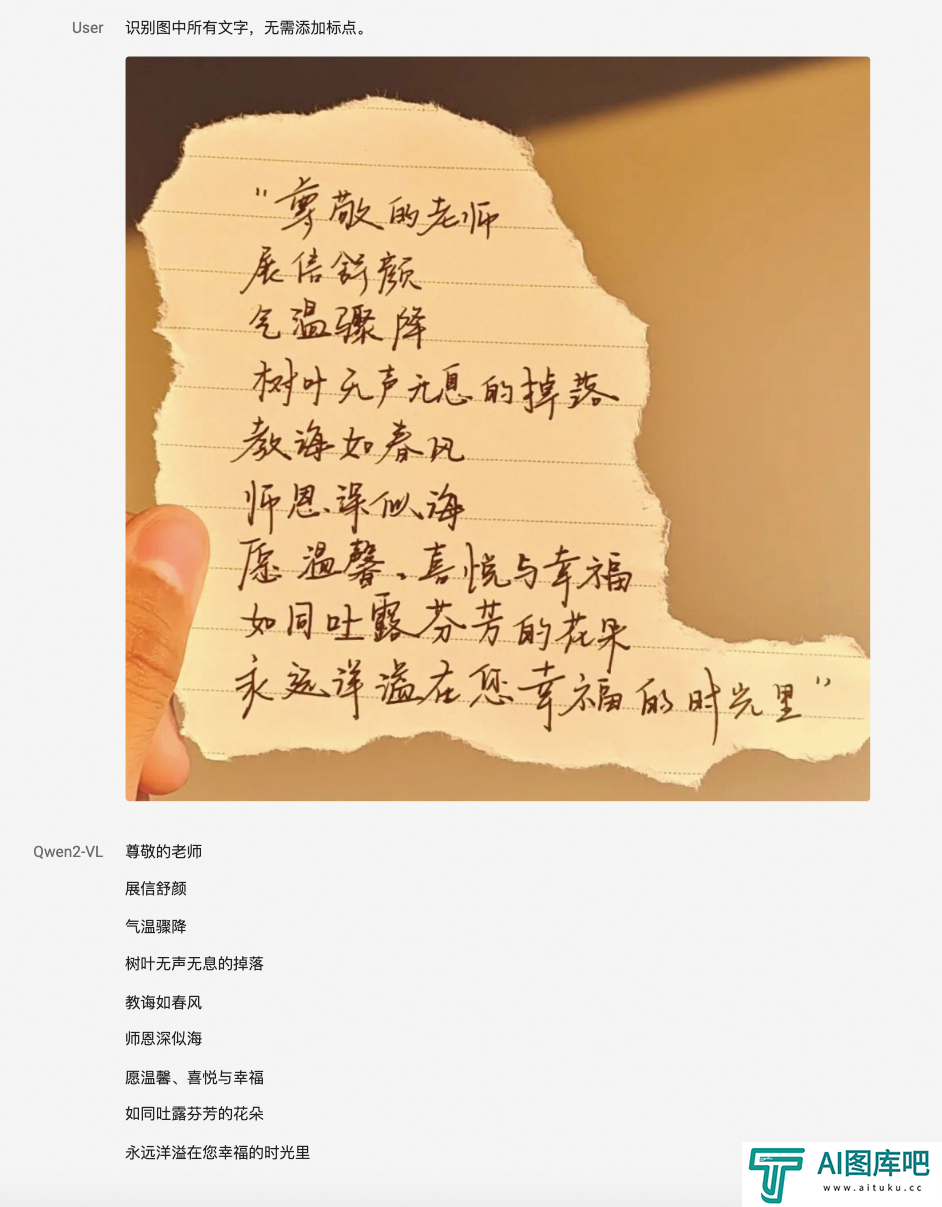 User 识别图中所有文字，无需添加标点。
"尊敬的老师
展信舒颜
气温骤降
树叶无声无息的掉落
教诲如春风
师恩深似海
愿温馨、喜悦与幸福
如同吐露芬芳的花朵
永远洋溢在您幸福的时光里"
Qwen2-VL 尊敬的老师
展信舒颜
气温骤降
树叶无声无息的掉落
教诲如春风
师恩深似海
愿温馨、喜悦与幸福
如同吐露芬芳的花朵
永远洋溢在您幸福的时光里
AI图库吧
www.aituku.cc